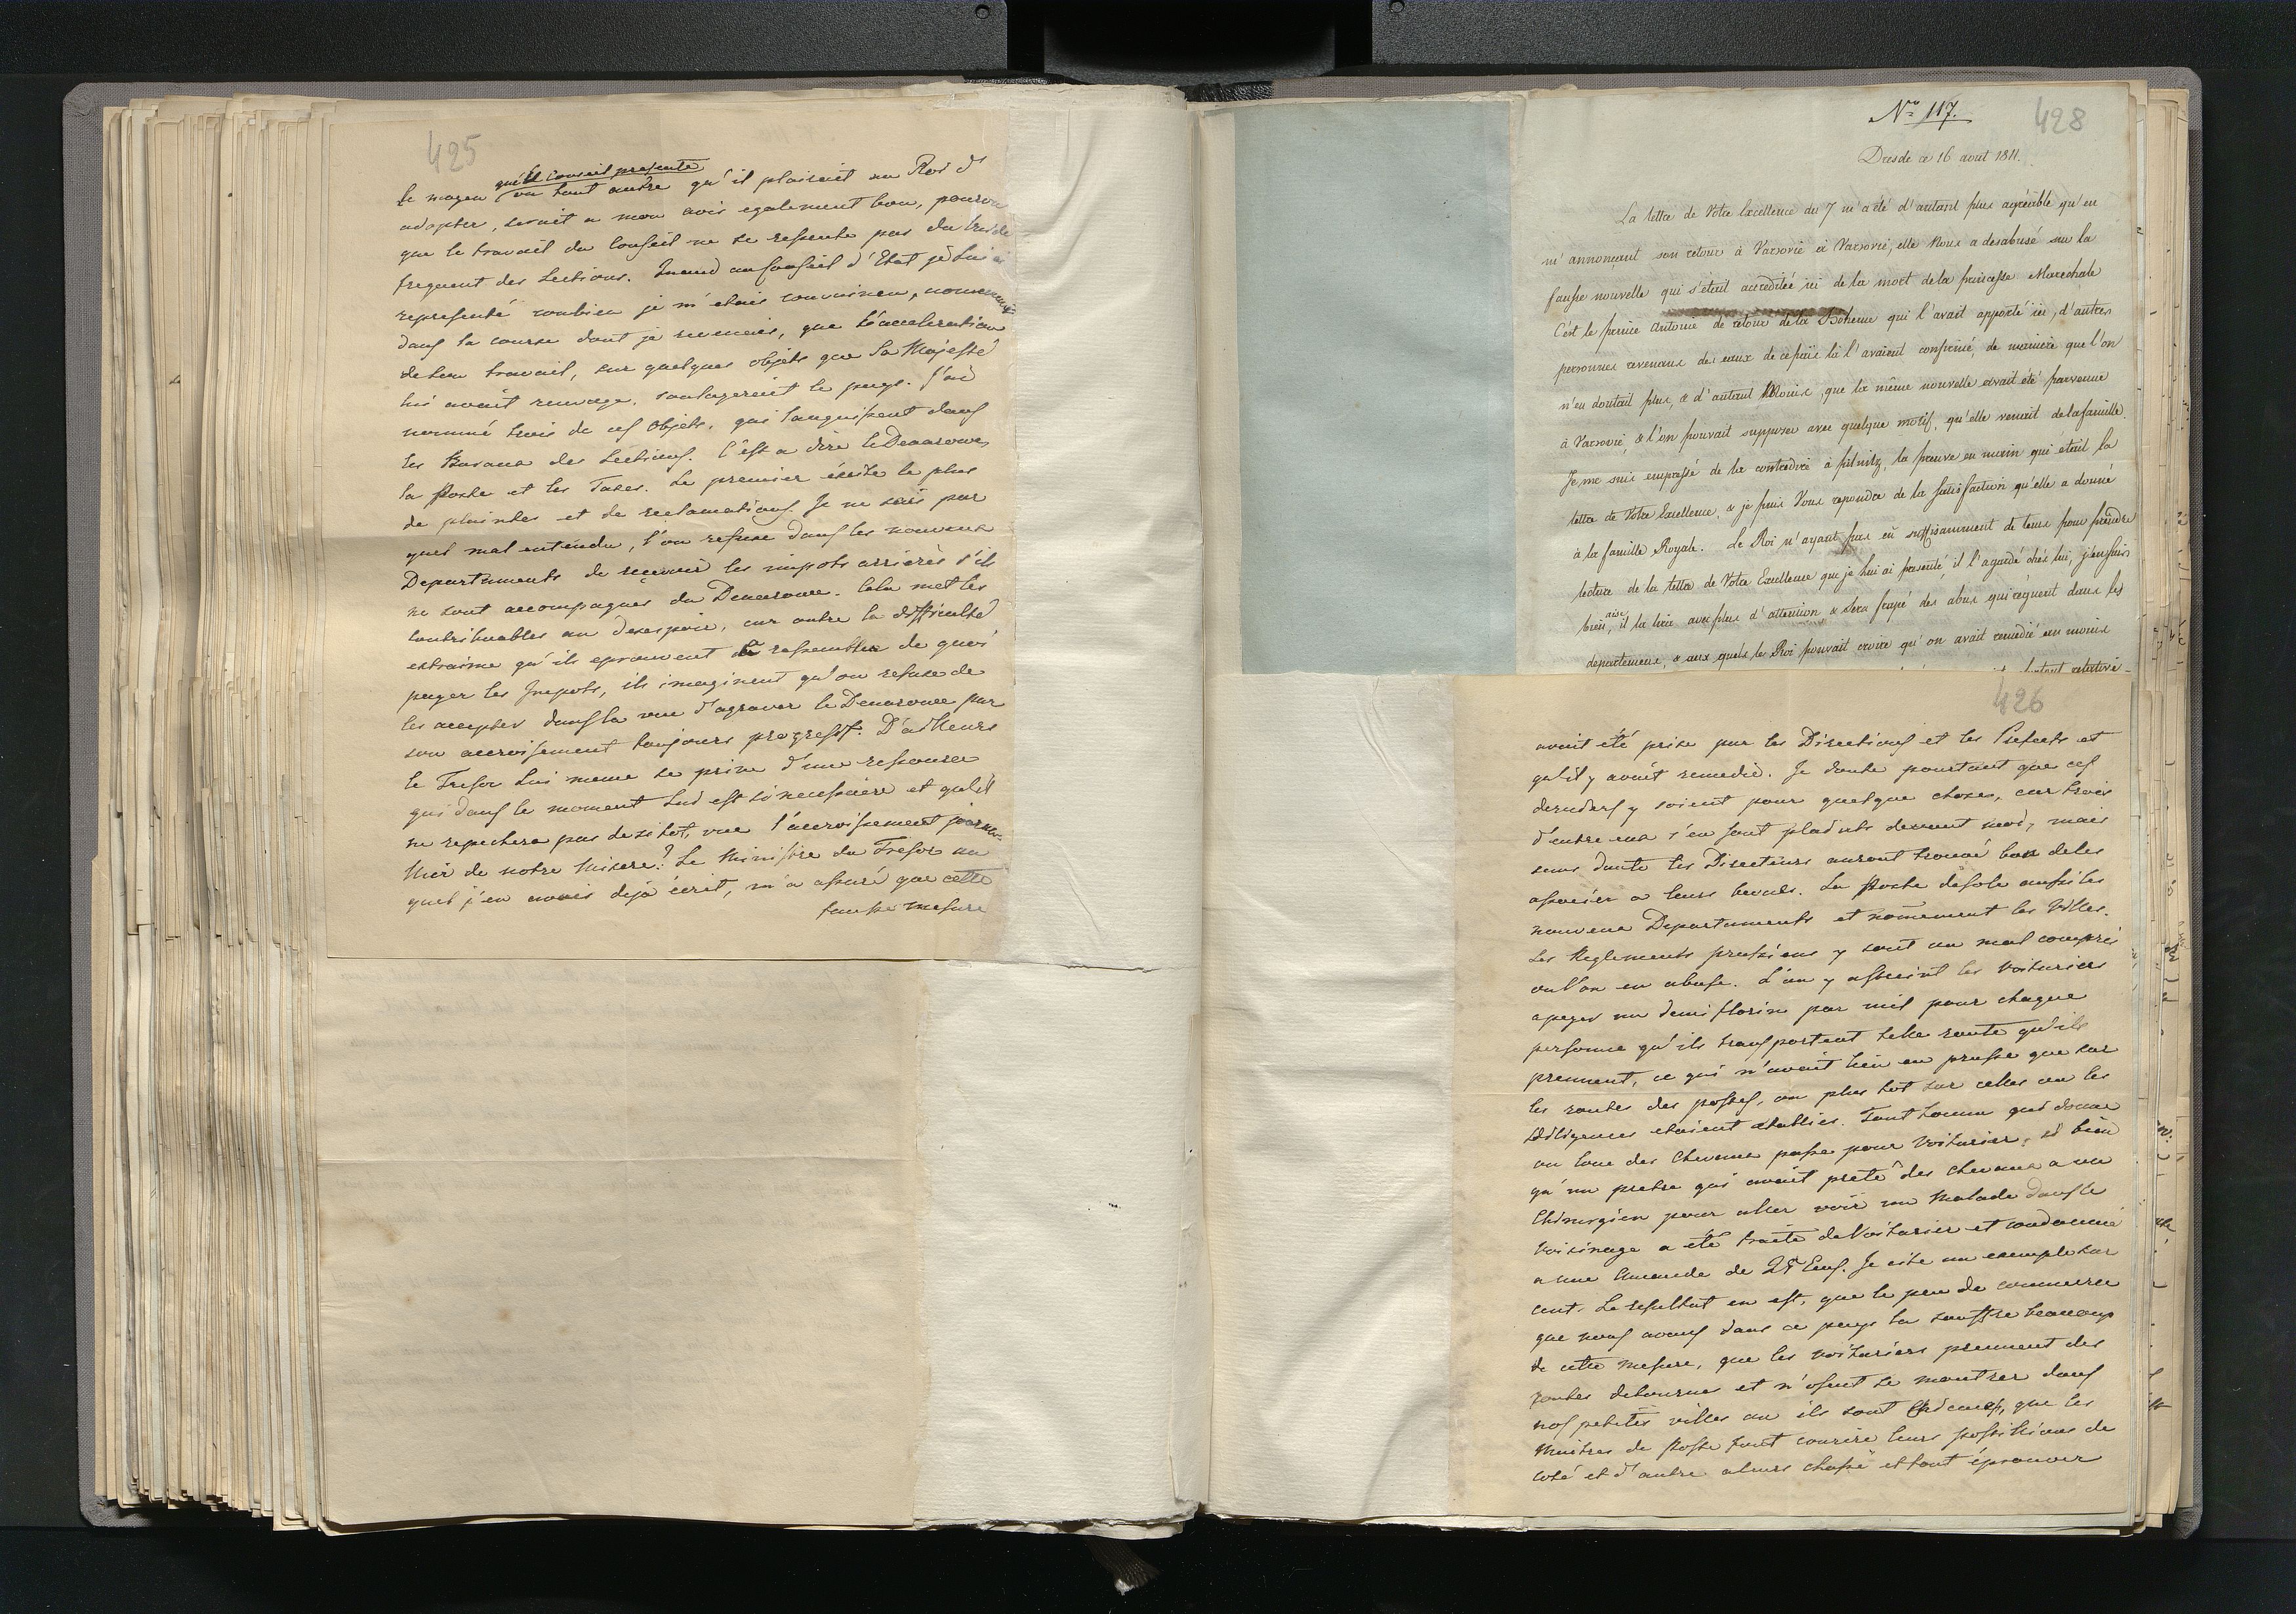 425
qu'il conseil presente
le moyen ou tout autre qu'il plairait au Roi d'
adopter, serait a mon avis egalement bon, pourvu
que le travail du Conseil ne se ressente pas du
frequent des Sections. Quand au Conseil d'Etat je lui ai
representé combien je m'etais convaincu, nommement
dans la course dont je revenais, que l'acceleration
de son travail, sur quelques objets que Sa Majesté
lui avait renvoyé, soulagerait le pays. J'ai
nommé trois de ces Objets, qui languissent dans
les Bureaux des Sections. C'est a dire le Denarowe,
la Poste et les Taxes. Le premier éxcite le plus
de plaintes et de reclamations. Je ne sais par
quel mal entendu, l'on refuse dans les nouveaux
Departements de reçevoir les impots arrierés s'ils
ne sont accompagnés du Denarowe. Cela met les
Contribuables au desespoir, car outre la difficulté
extraime qu'ils eprouvent de rassembler de quoi
payer les Impots, ils imaginent qu'on refuse de
les accepter dans la vue d'agraver le Denarowe par
son accroissement toujours progressif. D'ailleurs
le Tresor Lui meme se prive d'une ressource
qui dans le moment lui est si necessaire et qu'il
ne repechera pas de sitot, vue l'accroissement journa-
lier de notre Misere. Le Ministre du Tresor au
quel j'en avais dejà écrit, m'a assuré que cette
fausse mesure
Nº 117.
428
Dresde ce 16 aout 1811.
La lettre de Votre Excellence du 7 m'a été d'autant plus agréable qu'en
m'annonçant son retour à Varsovie à Varsovie, elle Nous a desabusé sur la
fausse nouvelle qui s'etait accreditée ici de la mort de la princesse Marechale
C'est le prince Antoine de retour de la Boheme qui l'avait apporté ici, d'autres
personnes revenans des eaux de ce païs là l'avaient confirmé de maniere que l'on
n'en doutait plus, & d'autant Moins, que la même nouvelle avait été parvenue
à Varsovie, & l'on pouvait supposer avec quelque motif, qu'elle venait de la famille.
Je me suis empressé de la contredire à pilnitz, la preuve en main qui etait la
lettre de Votre Excellence, & je puis Vous repondre de la satisfaction qu'elle a donné
à la famille Royale. Le Roi n'ayant pas eû suffisamment de tems pour prendre
lecture de la lettre de Votre Excellence que je lui ai presenté, il l'a gardé chés lui, j'en suis
aise
bien, il la lira avec plus d'attention & sera frapé des abus qui regnent dans les
departemens, & aux quels le Roi pouvait croire qu'on avait remedié au moins
426
avait été prise par les Directions et les Prefects et
qu'il y avait remedié. Je doute pourtant que ces
derniers y soient pour quelque chose, car trois
d'entre eux s'en sont plaints devant moi, mais
sans doute les Directeurs auront trouvé bon de les
associer a leurs. La Poste desole aussi les
nouveaux Departements et nommement les Villes.
Les Reglements prussiens y sont ou mal compris
ou l'on en abuse. L'on y astreint les Voituriers
a payer un demi florin par mil pour chaque
personne qu'ils transportent telle route qu'ils
prennent, ce qui n'avait lieu en prusse que sur
les routes des postes, ou plus tot sur celles ou les
Diligences etaient etablies. Tout homme qui donne
ou loue des Chevaux passe pour Voiturier, si bien
qu'un pretre qui avait preté des Chevaux a un
Chirurgien pour aller voir un Malade dans le
Voisinage a été traité de Voiturier et condamné
a une Amende de 25 Ecus. Je cite un exemple sur
cent. Le resultat en est, que le peu de commerce
que nous avons dans ce pays la souffre beaucoup
de cette mesure, que les voituriers prennent des
routes detournes et n'osent se montrer dans
nos petites villes ou ils sont, que les
Maitres de Poste font courire leurs postillons de
coté et d'autre a leurs chasse et font éprouver